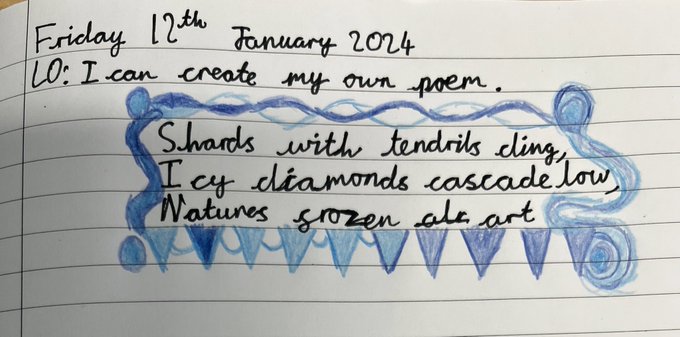 Friday 12th January 2024
LO: I can create my own poem.
Shards with tendrils cling,
Icy diamonds cascade low,
Natures frozen art